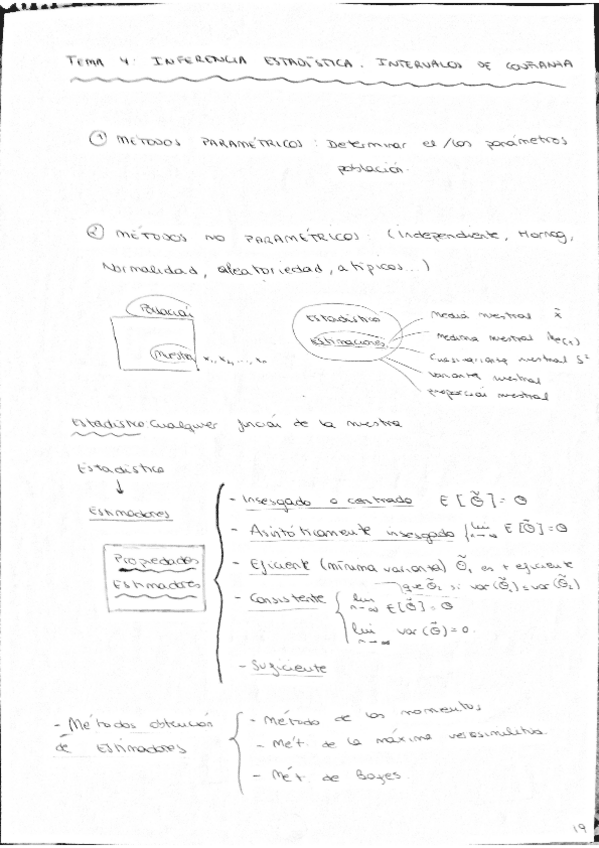 TEMA 4: INFERENCIA ESTADÍSTICA. INTERVALOS DE CONFIANZA
① MÉTODOS PARAMÉTRICOS: Determinar el/los parámetros
población.
② MÉTODOS NO PARAMÉTRICOS: (independiente, Homog,
Normalidad, aleatoriedad, atípicos...)
Población
Muestra x₁, x₂, ..., xₙ
Estadístico
Estimaciones
media muestral x̄
mediana muestral
Cuasivarianza muestral S²
varianza muestral
proporción muestral
Estadístico Cualquier función de la muestra
Estadístico
↓
Estimadores
Propiedades
Estimadores
- Insesgado o centrado E[θ̃] = θ
- Asintóticamente insesgado lim n→∞ E[θ̃] = θ
- Eficiente (mínima varianza) θ̃₁ es + eficiente
que θ̃₂ si var(θ̃₁) ≤ var(θ̃₂)
- Consistente lim n→∞ E[θ̃] = θ
lim n→∞ var(θ̃) = 0.
- Suficiente
- Métodos obtención
de Estimadores
- Método de los momentos
- Mét. de la máxima verosimilitud.
- Mét. de Bayes.
19